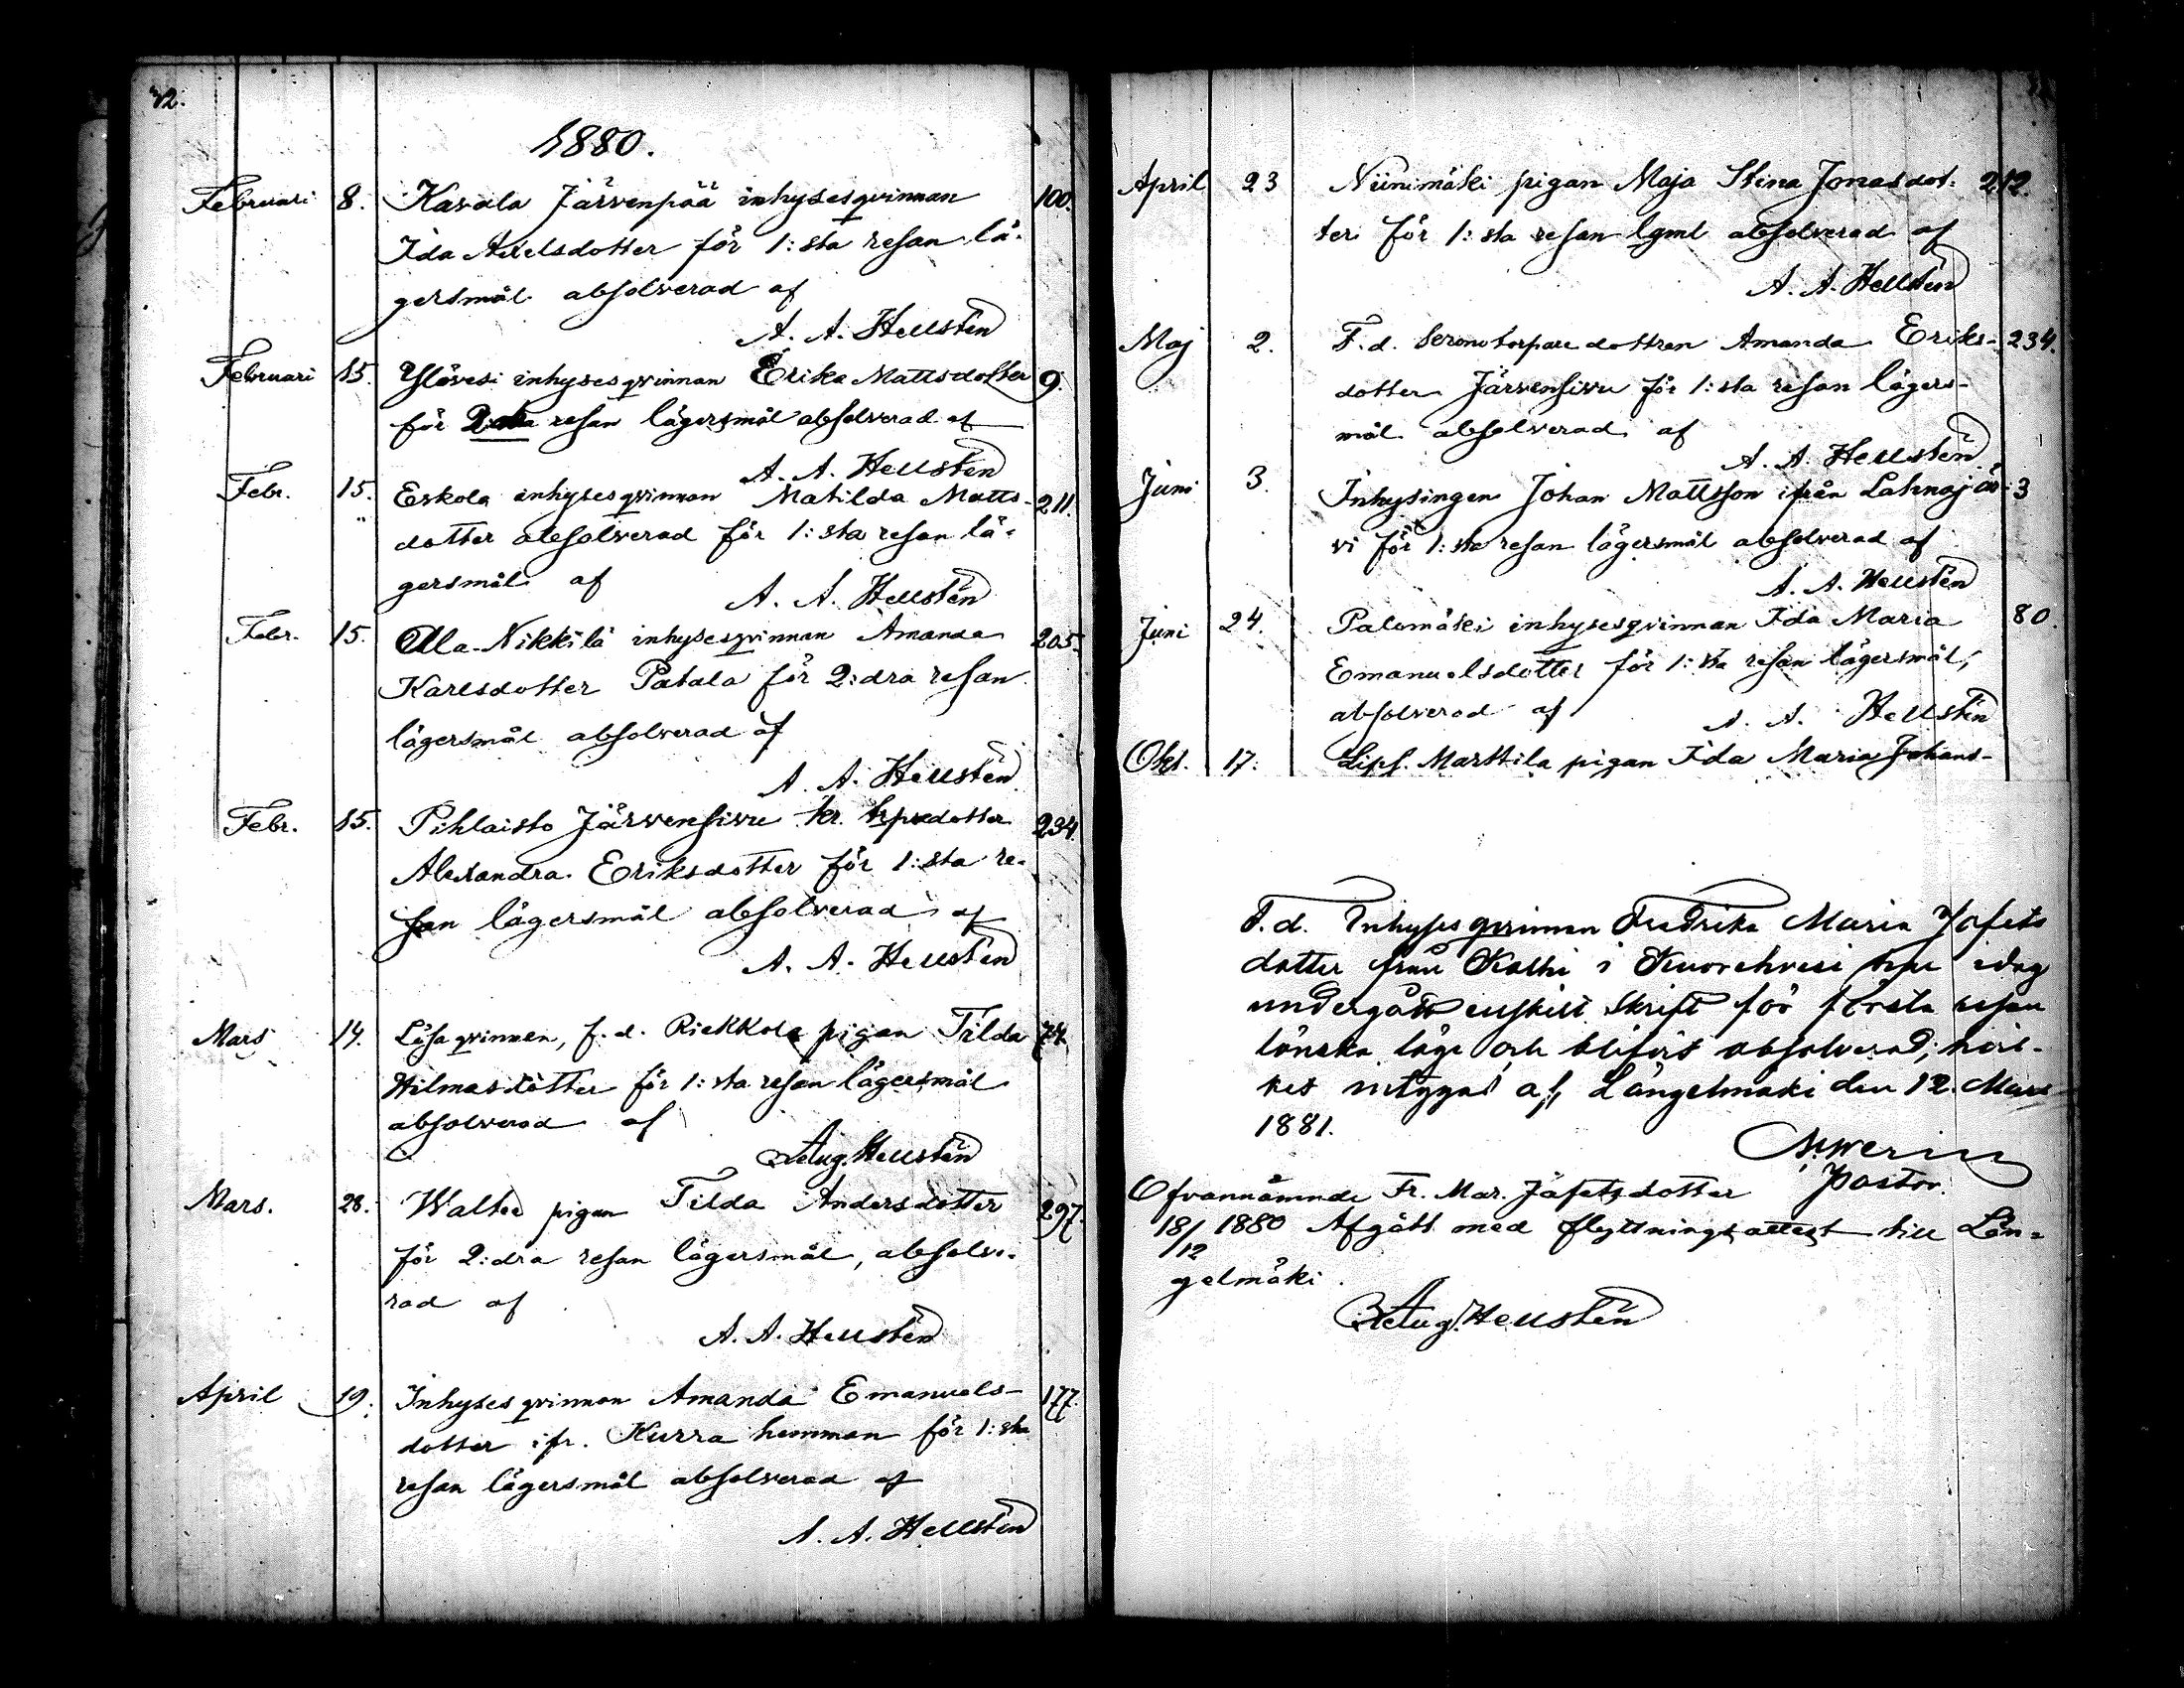 32.
1880.
Februari 8. Kavala Järvenpää inhysesqvinnan 100.
Ida Axelsdotter för 1:sta resan lä-
gersmål absolverad af
A. A. Hellstén
Februari 15. Ylövesi inhysesqvinnan Erika Mattsdotter 9.
för resan lägersmål absolverad af
A. A. Hellstén
Febr. 15. Eskola inhysesqvinnan Matilda Matts- 211.
dotter absolverad för 1:sta resan lä-
gersmål af A. A. Hellstén
Febr. 15. Ala-Nikkilä inhysesqvinnan Amanda 205.
Karlsdotter Patala för 2:dra resan
lägersmål absolverad af
A. A. Hellstén
Febr. 15. Pihlaisto Järvensivu kr. trpredotter 234.
Alexandra Eriksdotter för 1:sta re-
san lägersmål absolverad af
A. A. Hellstén
Mars 14. Lösaqvinnan, f.d. Riekkola pigan Tilda 74
Wilmasdotter för 1:sta resan lägersmål
absolverad af
Aug. Hellstén
Mars. 28. Waltee pigan Tilda Andersdotter 297.
för 2:dra resan lägersmål, absolve-
rad af
A. A. Hellstén
April 19. Inhysesqvinnan Amanda Emanuels- 177.
dotter ifr. Kurra hemman för 1:sta
resan lägersmål absolverad af
A. A. Hellstén
April 23 Niinimäki pigan Maja Stina Jonasdot- 212.
ter för 1:sta resan lgml absolverad af
A. A. Hellstén
Maj 2. F.d. kronotorpare dottren Amanda Eriks- 234.
dotter Järvensivu för 1:sta resan lägers-
mål absolverad af
A. A. Hellstén
Juni 3. Inhysingen Johan Mattsson ifrån Lahnajär- 3
vi för 1:sta resan lägersmål absolverad af
A. A. Hellstén
Juni 24. Palomäki inhysesqvinnan Ida Maria 80.
Emanuelsdotter för 1:sta resan lägersmål,
absolverad af A. A. Hellstén
Okt. 17. Lips. Marttila pigan Ida Maria Johans-
F.d. Inhysesqvinnan Fredrika Maria Jafets
dotter från i Kuorehvesi har idag
undergått enskilt skrift för första resan
lönska läge och blifvit absolverad; hvil-
ket intygas af, Längelmäki den 12. Mars
1881.
Pastor.
Ofvannämnde Fr. Mar. Jäfetsdotter
18/12 1880 Afgått med flyttningsattest till Län-
gelmäki.
Aug. Hellstén